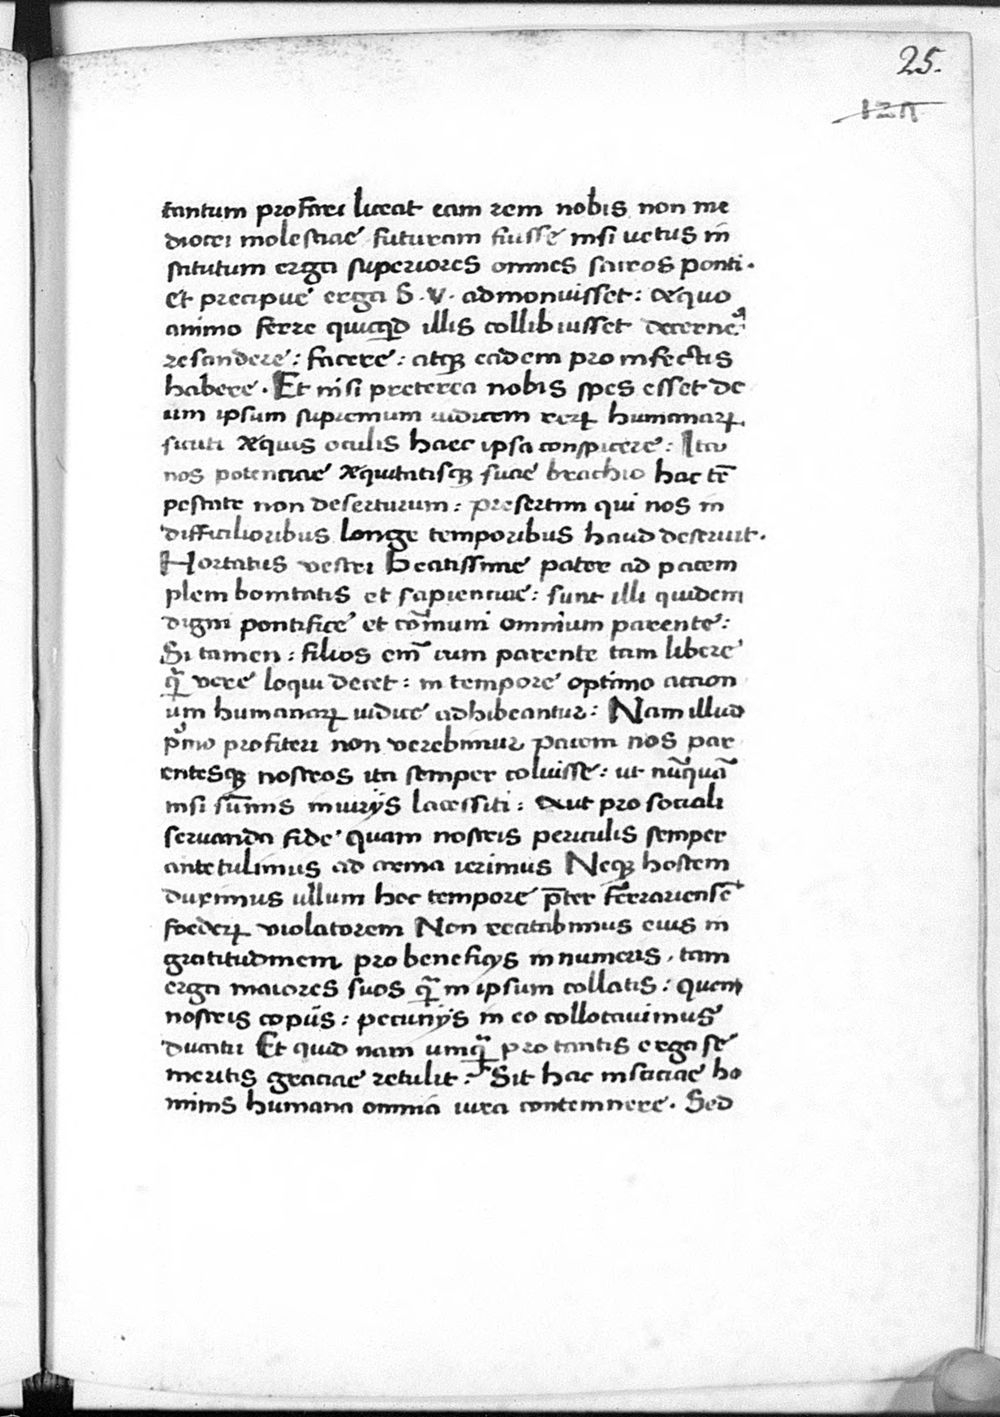 25.
tantum profari liceat eam rem nobis non me
diocri molestiae futuram fuisse nisi uetus in
stitutum erga superiores omnes sacros ponti.
et precipue erga S. V. admonuisset: aequo
animo ferre quicqd illis collibuisset decerne
rescindere: facere: atq; eadem pro infectis
habere. Et nisi preterea nobis spes esset de
um ipsum supremum iudicem rerꝝ humanarꝝ
sicuti aequis oculis haec ipsa conspicere: Ita
nos potenciae aequitatisq; suae brachio hac tē
pestate non deserturum: presertim qui nos in
difficilioribus longe temporibus haud deseruit.
Hortatus vestri Beatissime pater ad pacem
pleni bonitatis et sapienciae: sunt illi quidem
digni pontifice et cōmuni omnium parente:
Si tamen: filios em̄ cum parente tam libere
q̄ vere loqui decet: in tempore optimo action
um humanarꝝ iudice adhibeantur: Nam illud
pͥmo profiteri non verebimur pacem nos par
entesq; nostros ita semper coluisse: ut nūquā
nisi sūmis iniurijs lacessiti: aut pro sociali
seruanda fide quam nostris periculis semper
antetulimus ad arma ierimus Neq; hostem
duximus ullum hoc tempore p̄ter Ferrariensē
foederꝝ violatorem Non recitabimus eius in
gratitudinem pro beneficijs innumeris, tam
erga maiores suos q̄ in ipsum collatis: quem
nostris copiis: pecunijs in eo collocauimus
ducatu Et quid nam umq̄ pro tantis erga se
meritis graciae retulit: Sit hac insciciae ho
minis humana omnia iura contemnere. Sed